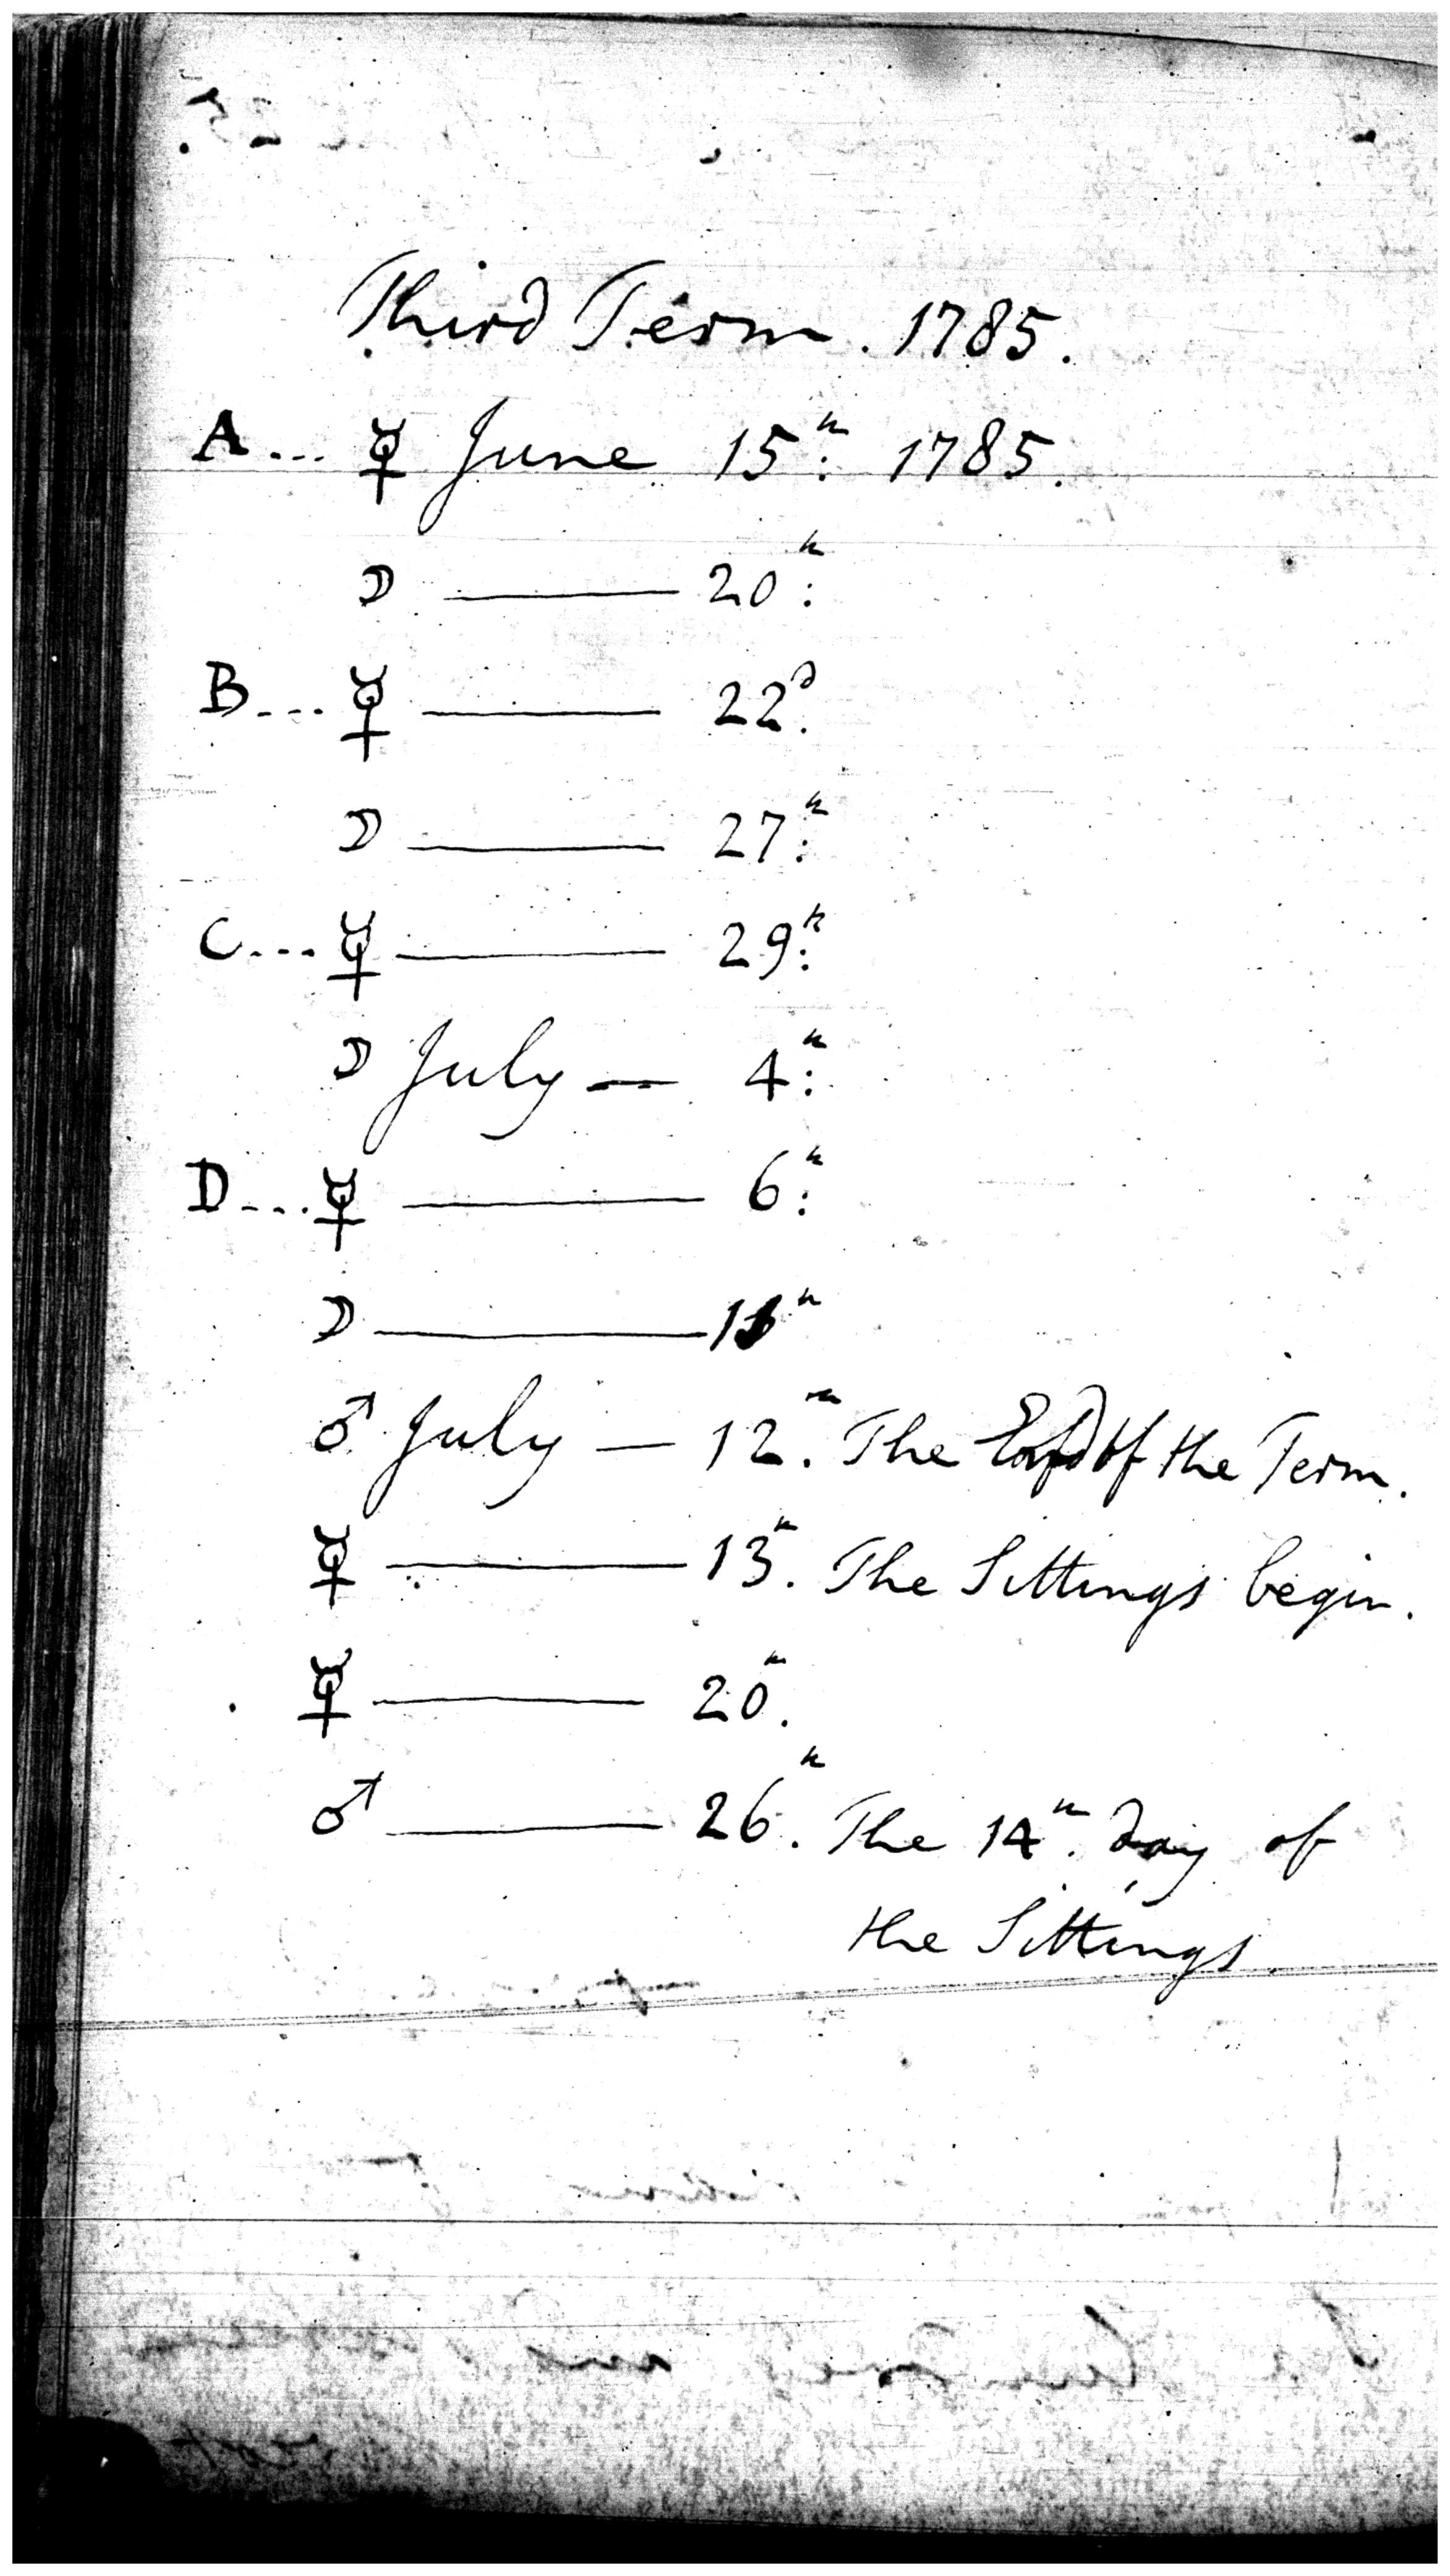 Third Term. 1785.
A... ☿ June 15th: 1785.
☽ —— 20th:
B... ☿ —— 22d.
☽ —— 27th:
C... ☿ —— 29th:
☽ July — 4th:
D... ☿ —— 6th:
☽ —— 11th
♂ July — 12th. The End of the Term.
☿ —— 13th. The Sittings begin.
☿ —— 20th.
♂ —— 26th. The 14th. day of
the Sittings.